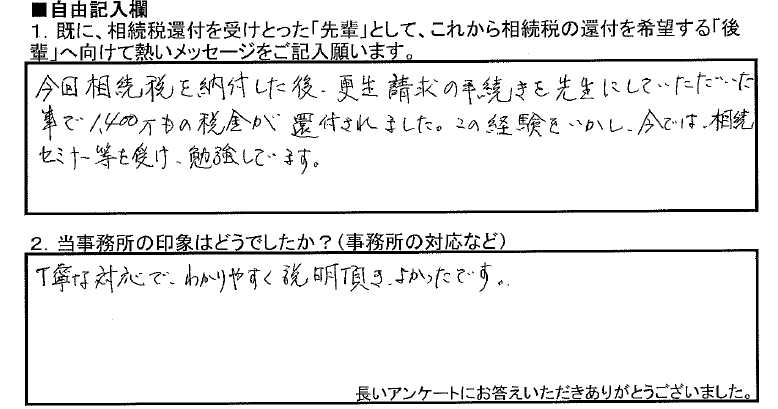 ■自由記入欄
1．既に、相続税還付を受けとった「先輩」として、これから相続税の還付を希望する「後
輩」へ向けて熱いメッセージをご記入願います。
今回相続税を納付した後、更生請求の手続きを先生にしていただいた
事で1,400万もの税金が還付されました。この経験をいかし、今では、相続
セミナー等を受け、勉強しています。
2．当事務所の印象はどうでしたか？（事務所の対応など）
丁寧な対応で、わかりやすく説明頂き、よかったです。
長いアンケートにお答えいただきありがとうございました。